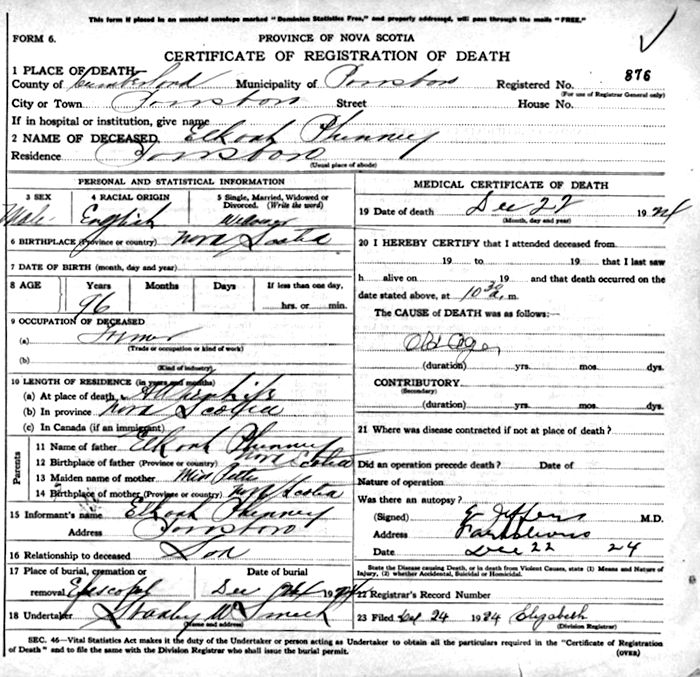 This form if placed in an unsealed envelope marked "Dominion Statistics Free," and properly addressed, will pass through the mails "FREE."
FORM 6.
PROVINCE OF NOVA SCOTIA
CERTIFICATE OF REGISTRATION OF DEATH
1 PLACE OF DEATH
876
County of Cumberland Municipality of Parrsboro Registered No.
(For use of Registrar General only)
City or Town Parrsboro Street House No.
If in hospital or institution, give name
2 NAME OF DECEASED. Elkanah Phinney
Residence Parrsboro
(Usual place of abode)
PERSONAL AND STATISTICAL INFORMATION
3 SEX 4 RACIAL ORIGIN 5 Single, Married, Widowed or Divorced. (Write the word)
Male English Widower
6 BIRTHPLACE (Province or country) Nova Scotia
7 DATE OF BIRTH (month, day and year)
8 AGE Years Months Days If less than one day,
96 hrs. or min.
9 OCCUPATION OF DECEASED
(a) Farmer
(Trade or occupation or kind of work)
(b)
(Kind of industry)
10 LENGTH OF RESIDENCE (in years and months)
(a) At place of death All his life
(b) In province Nova Scotia
(c) In Canada (if an immigrant)
Parents
11 Name of father Elkanah Phinney
12 Birthplace of father (Province or country) Nova Scotia
13 Maiden name of mother Miss
14 Birthplace of mother (Province or country) Nova Scotia
15 Informant's name Elkanah Phinney
Address Parrsboro
16 Relationship to deceased Son
17 Place of burial, cremation or Date of burial
removal Episcopal Dec 1924
18 Undertaker Stanley W Smith
(Name and address)
MEDICAL CERTIFICATE OF DEATH
19 Date of death Dec 22 1924
(Month, day and year)
20 I HEREBY CERTIFY that I attended deceased from
19 to 19 that I last saw
h alive on 19 and that death occurred on
date stated above, at 10 30 a. m.
The CAUSE of DEATH was as follows:—
Old Age
(duration) yrs. mos. dys.
CONTRIBUTORY
(Secondary)
(duration) yrs. mos. dys.
21 Where was disease contracted if not at place of death?
Did an operation precede death? Date of
Nature of operation
Was there an autopsy?
(Signed) Jeffers M.D.
Address Parrsboro
Date Dec 22 24
State the Disease causing Death, or in death from Violent Causes, state (1) Means and Nature of Injury, (2) whether Accidental, Suicidal or Homicidal.
22 Registrar's Record Number
23 Filed Dec 24 1924 Elizabeth
(Division Registrar)
SEC. 46—Vital Statistics Act makes it the duty of the Undertaker or person acting as Undertaker to obtain all the particulars required in the "Certificate of Registration
of Death" and to file the same with the Division Registrar who shall issue the burial permit. (OVER)